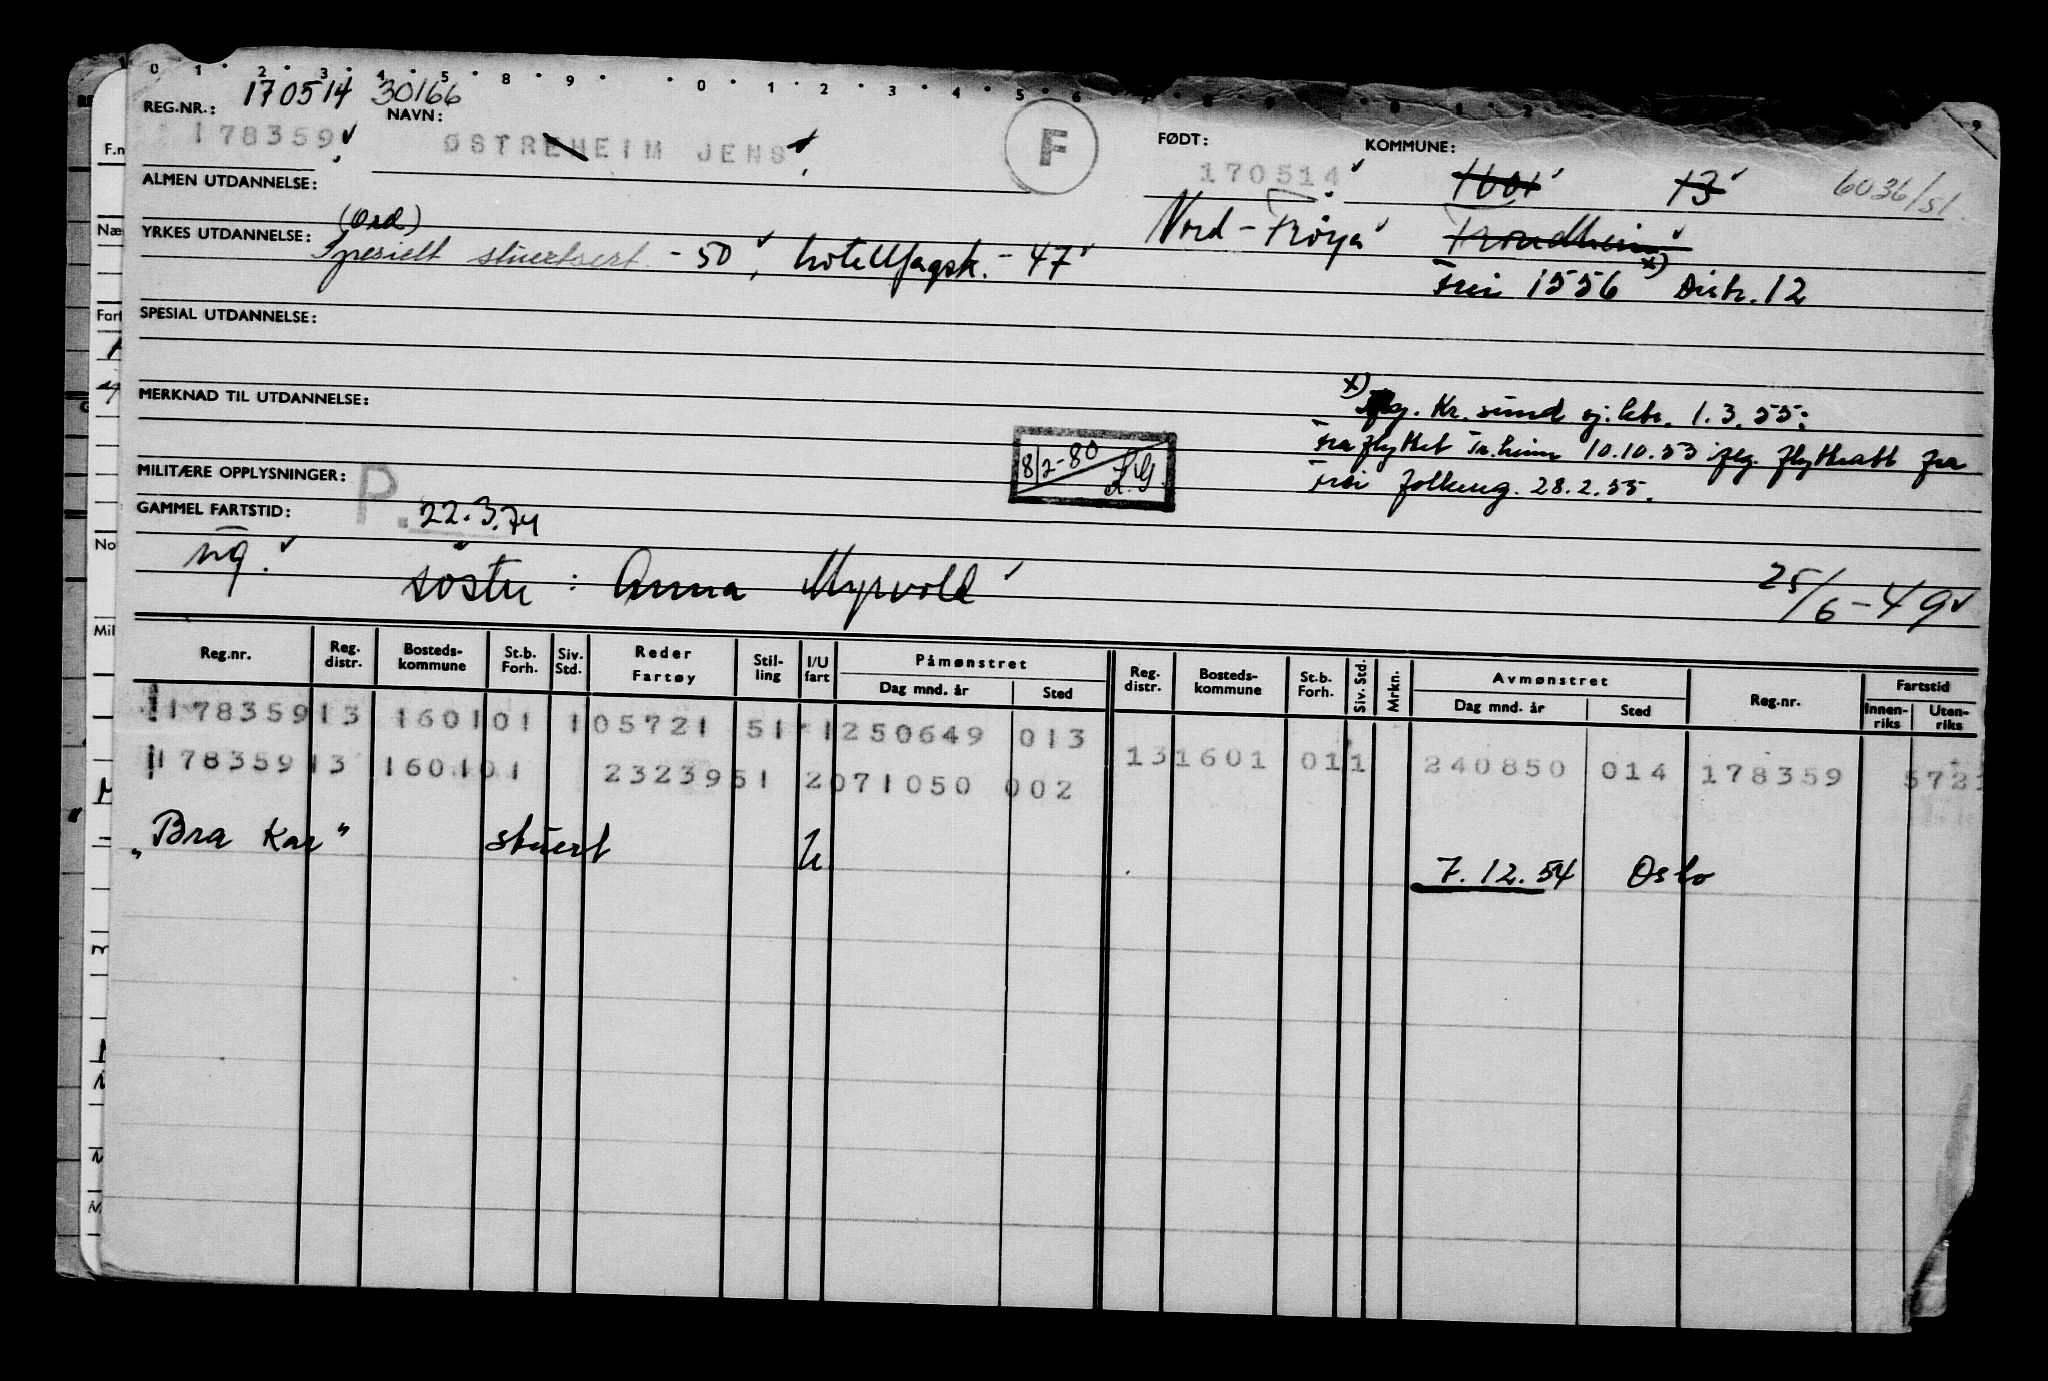 0 1 2 3 4 5 8 9 0 1 2 3 4 5 6
170514 30166
REG.NR.: NAVN: FØDT: KOMMUNE:
178359 ØSTREHEIM JENS F 170514 1601 13 6036/51
ALMEN UTDANNELSE:
Nord-Frøya Trondheim x)
(Ord)
YRKES UTDANNELSE: Spesielt stuertsert. -50, hotellfagsk. -47
Frei 1556 Distr. 12
SPESIAL UTDANNELSE:
MERKNAD TIL UTDANNELSE:
x) flg. Kr.sund sj.ktr. 1.3.55:
Fraflyttet Tr.heim 10.10.53 iflg. flytteatt fra
Frei folkereg. 28.2.55.
8/2-80 K.G.
MILITÆRE OPPLYSNINGER: P.
GAMMEL FARTSTID: 22.3.74
ng. søster: Anna Myrvold 25/6-49
Reg.nr. Reg. distr. Bosteds-kommune St.b. Forh. Siv. Std. Reder Fartøy Stil-ling I/U fart Påmønstret Dag mnd. år Sted Reg. distr. Bosteds-kommune St.b. Forh. Siv. Std. Mrkn. Avmønstret Dag mnd. år Sted Reg.nr. Fartstid Innen-riks Uten-riks
178359 13 1601 01 1 05721 51 1 250649 013 13 1601 01 1 240850 014 178359 572
178359 13 1601 01 23239 51 2 071050 002
"Bra Kar" stuert U 7.12.54 Oslo